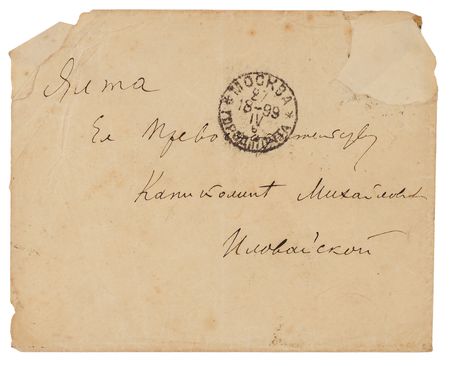 Ялта
МОСКВА
27
IV
18-99
Ея Превосходительству
Капитолине Михайловне
Иловайской